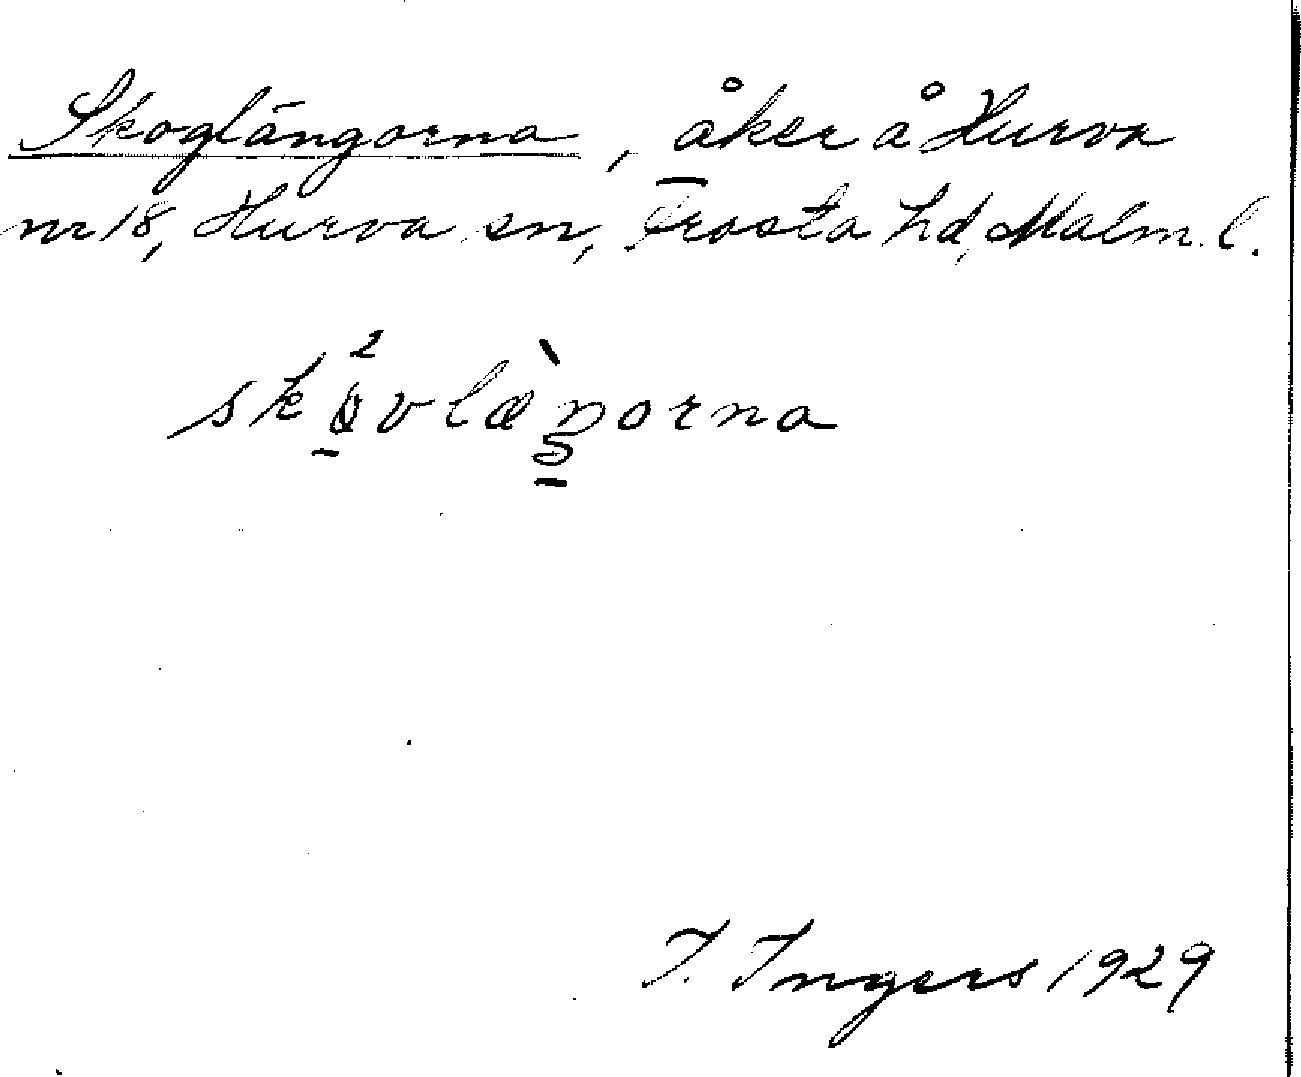 Skoglängorna, åker å Hurva
nr 18, Hurva sn, Frosta hd, Malm. l.
I. Ingers 1929